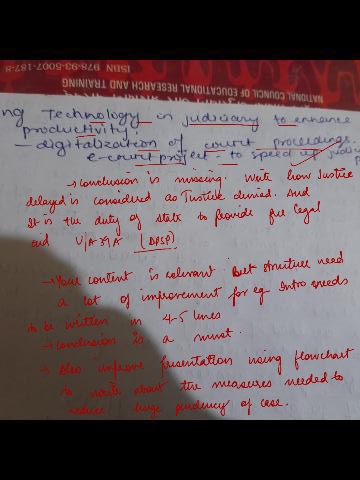 ISBN 978-93-5007-187-8
NATIONAL COUNCIL OF EDUCATIONAL RESEARCH AND TRAINING
ng Technology in judiciary to enhance
productivity.
- digitalization of court proceedings.
e-court project - to speed up judici
→ Conclusion is missing. Write how Justice
delayed is considered as Justice denied. And
It is the duty of state to provide free legal
aid U/A 39A (DPSP)
→ Your content is relevant But structure need
a lot of improvement for eg Intro needs
to be written in 4-5 lines
→ conclusion is a must.
→ Also improve presentation using flowchart
to write about the measures needed to
reduce huge pendency of case.